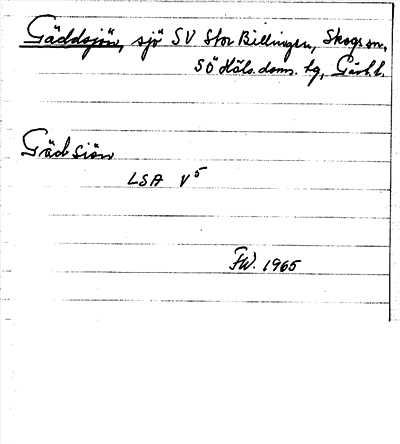 Gäddsjön, sjö SV Stor Billingen, Skogs sn,
SÖ Häls. doms. tg, Gävl. l.
Gäd siön
LSA V⁵
FW. 1965